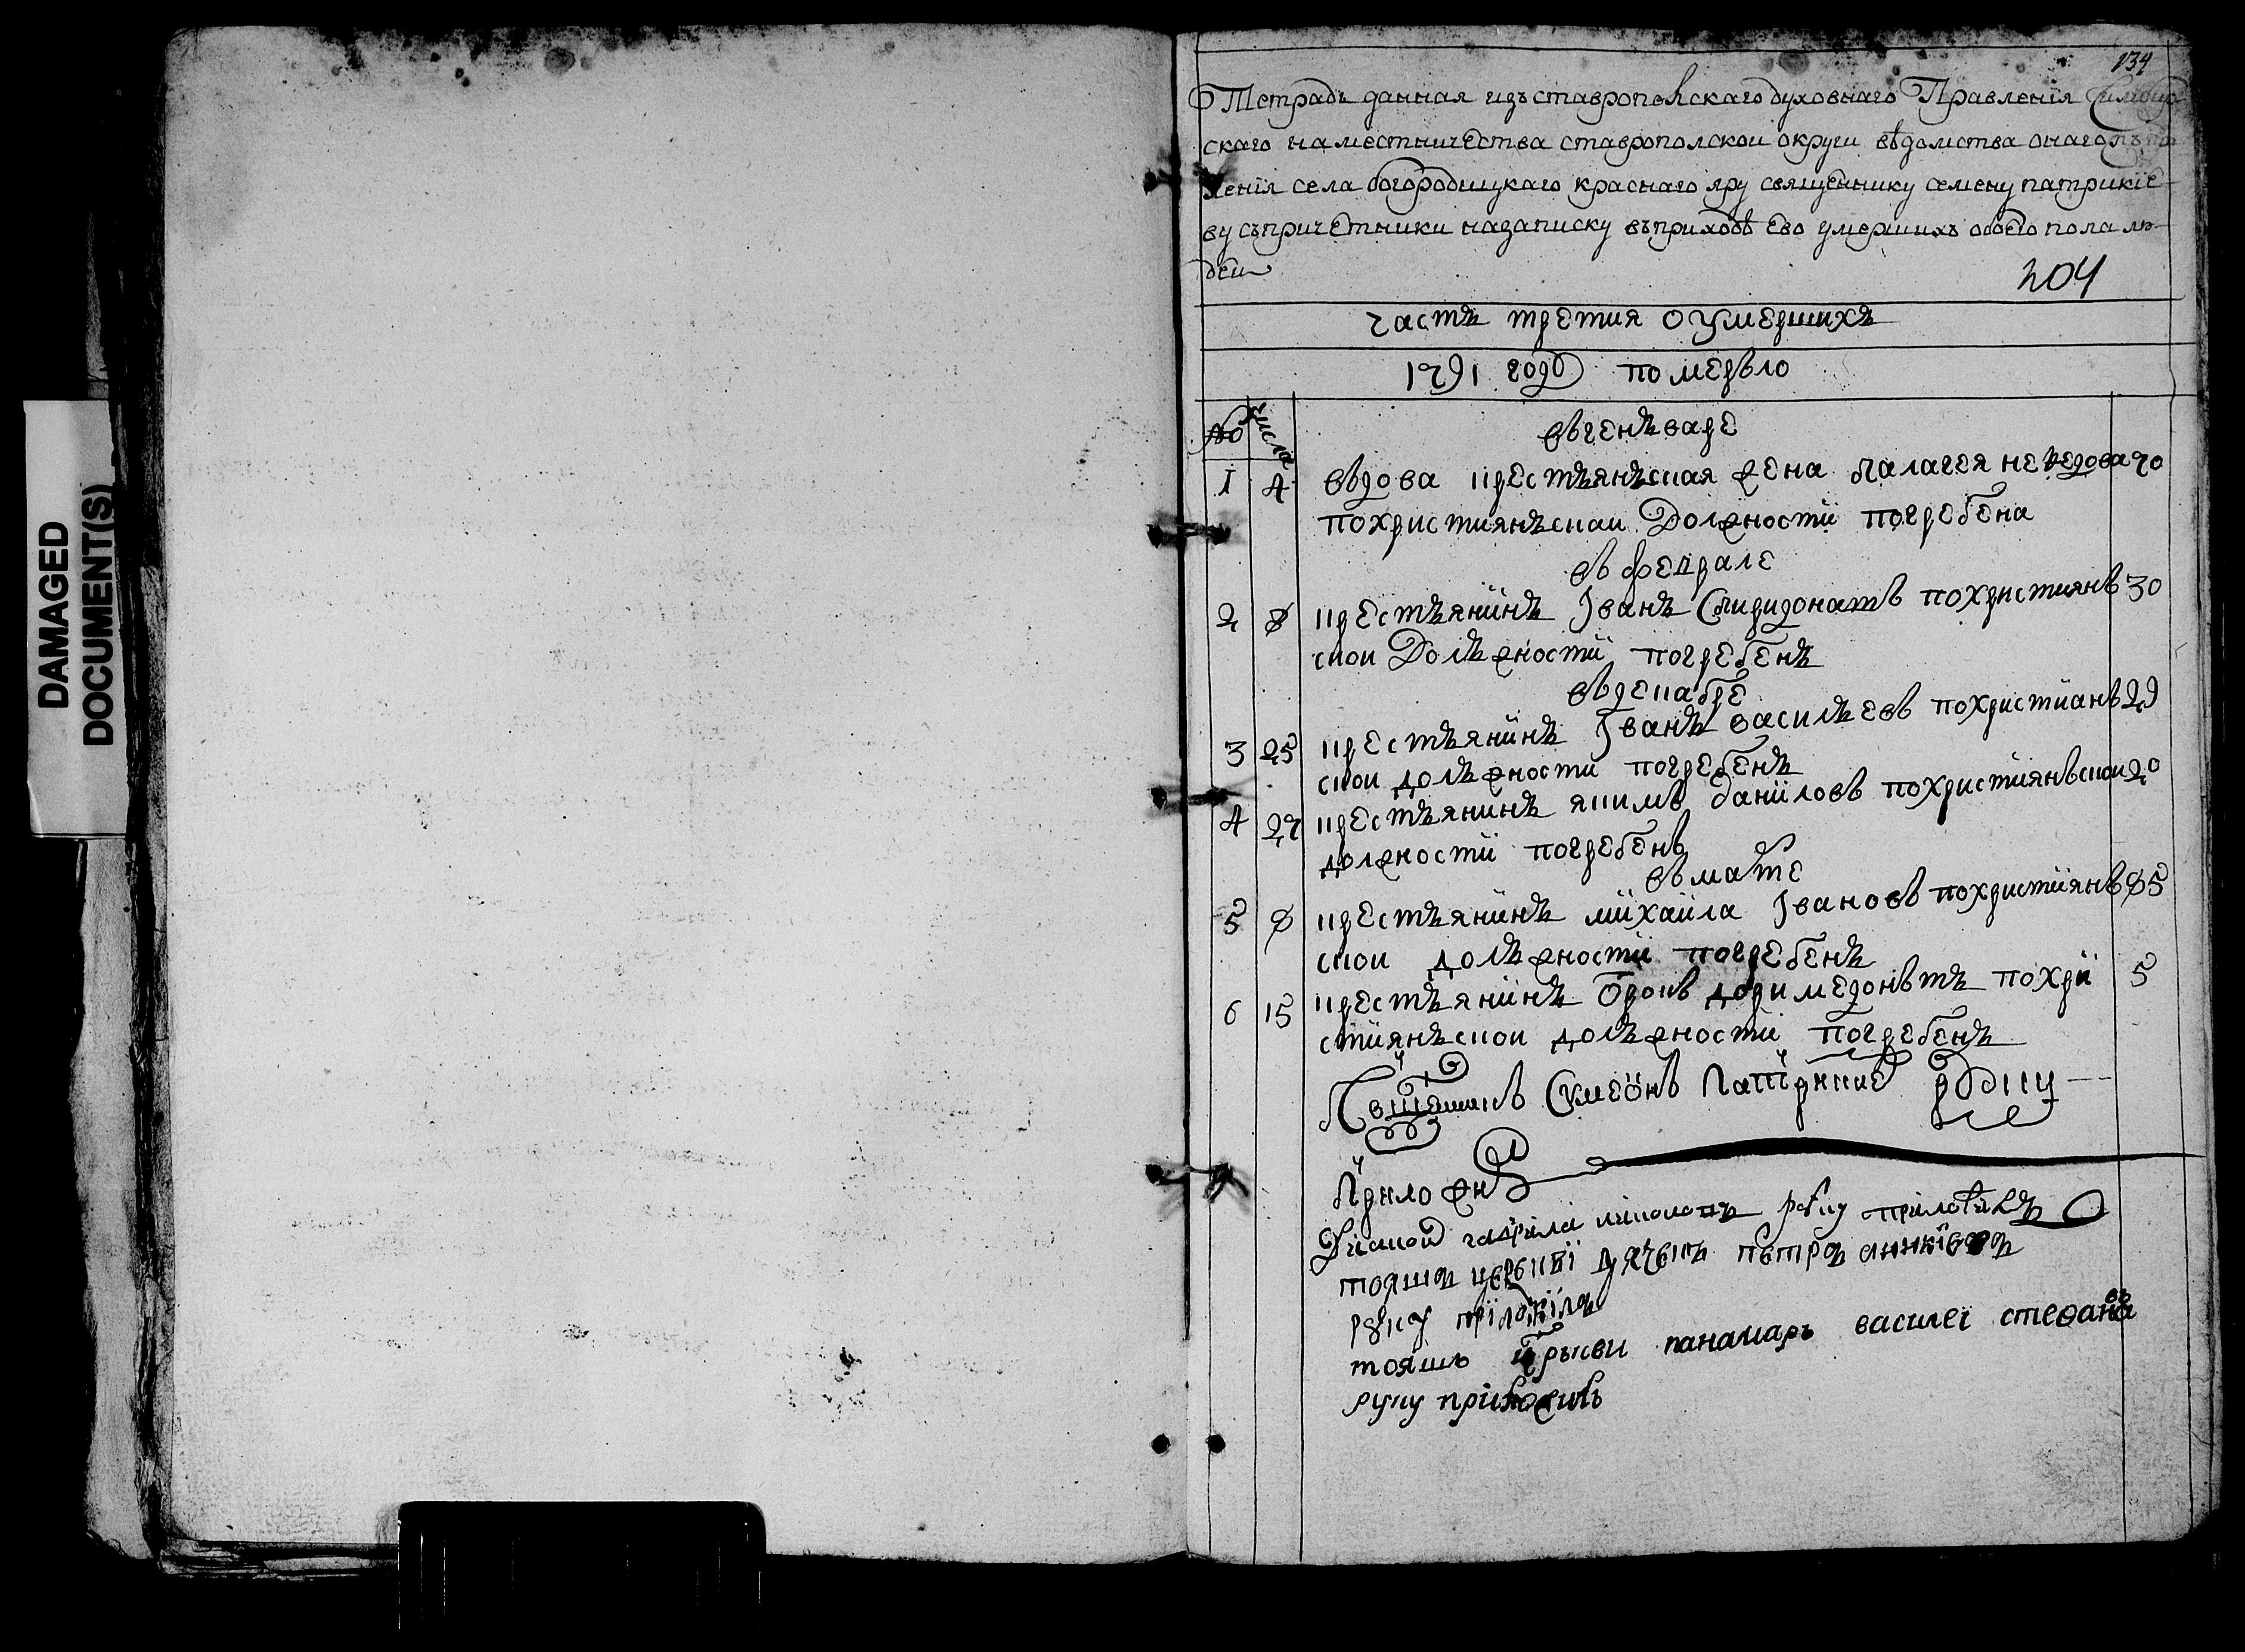 DAMAGED
DOCUMENT(S)
134
Тетрадь данная изъ ставропольскаго духовнаго Правленїя Симбир
скаго наместничества ставрополской округи вѣдомства онаго
ленїя села богородицкаго краснаго яру священнику семену патрикїе
ву съпричетники назаписку въприходѣ ево умершихъ обоего пола лю
деи
204
часть третия о умершихъ
1791 годъ померло
№ числа
въгенъваре
1 4 въдова крестьянъская жена палагея 70
похристиянъскаи Должности погребена
въ феврале
2 8 крестьянинъ Іванъ Спиридонатъ похристиянъ 30
скои Долъжности погребенъ
въдекабре
3 25 крестьянинъ Іванъ васильевъ похристианъ 29
скои долъжности погребенъ
4 27 крестьянинъ якимъ даниловъ похристиянъскои 20
должности погребенъ
въ марте
5 8 крестьянинъ михаила Івановъ похристиянъ 85
скои долъжности погребенъ
6 15 крестьянинъ доримедонътъ похри 5
стиянъскои долъжности погребенъ
Сѵмеонъ Патрикие руку
Приложи
Диакон гаврила руку приложилъ
тояжъ церькві дячекъ пѣтръ аникїевъ
руку приложилъ
тояжъ церькви панамарь василеї стеѳановъ
руку приложилъ